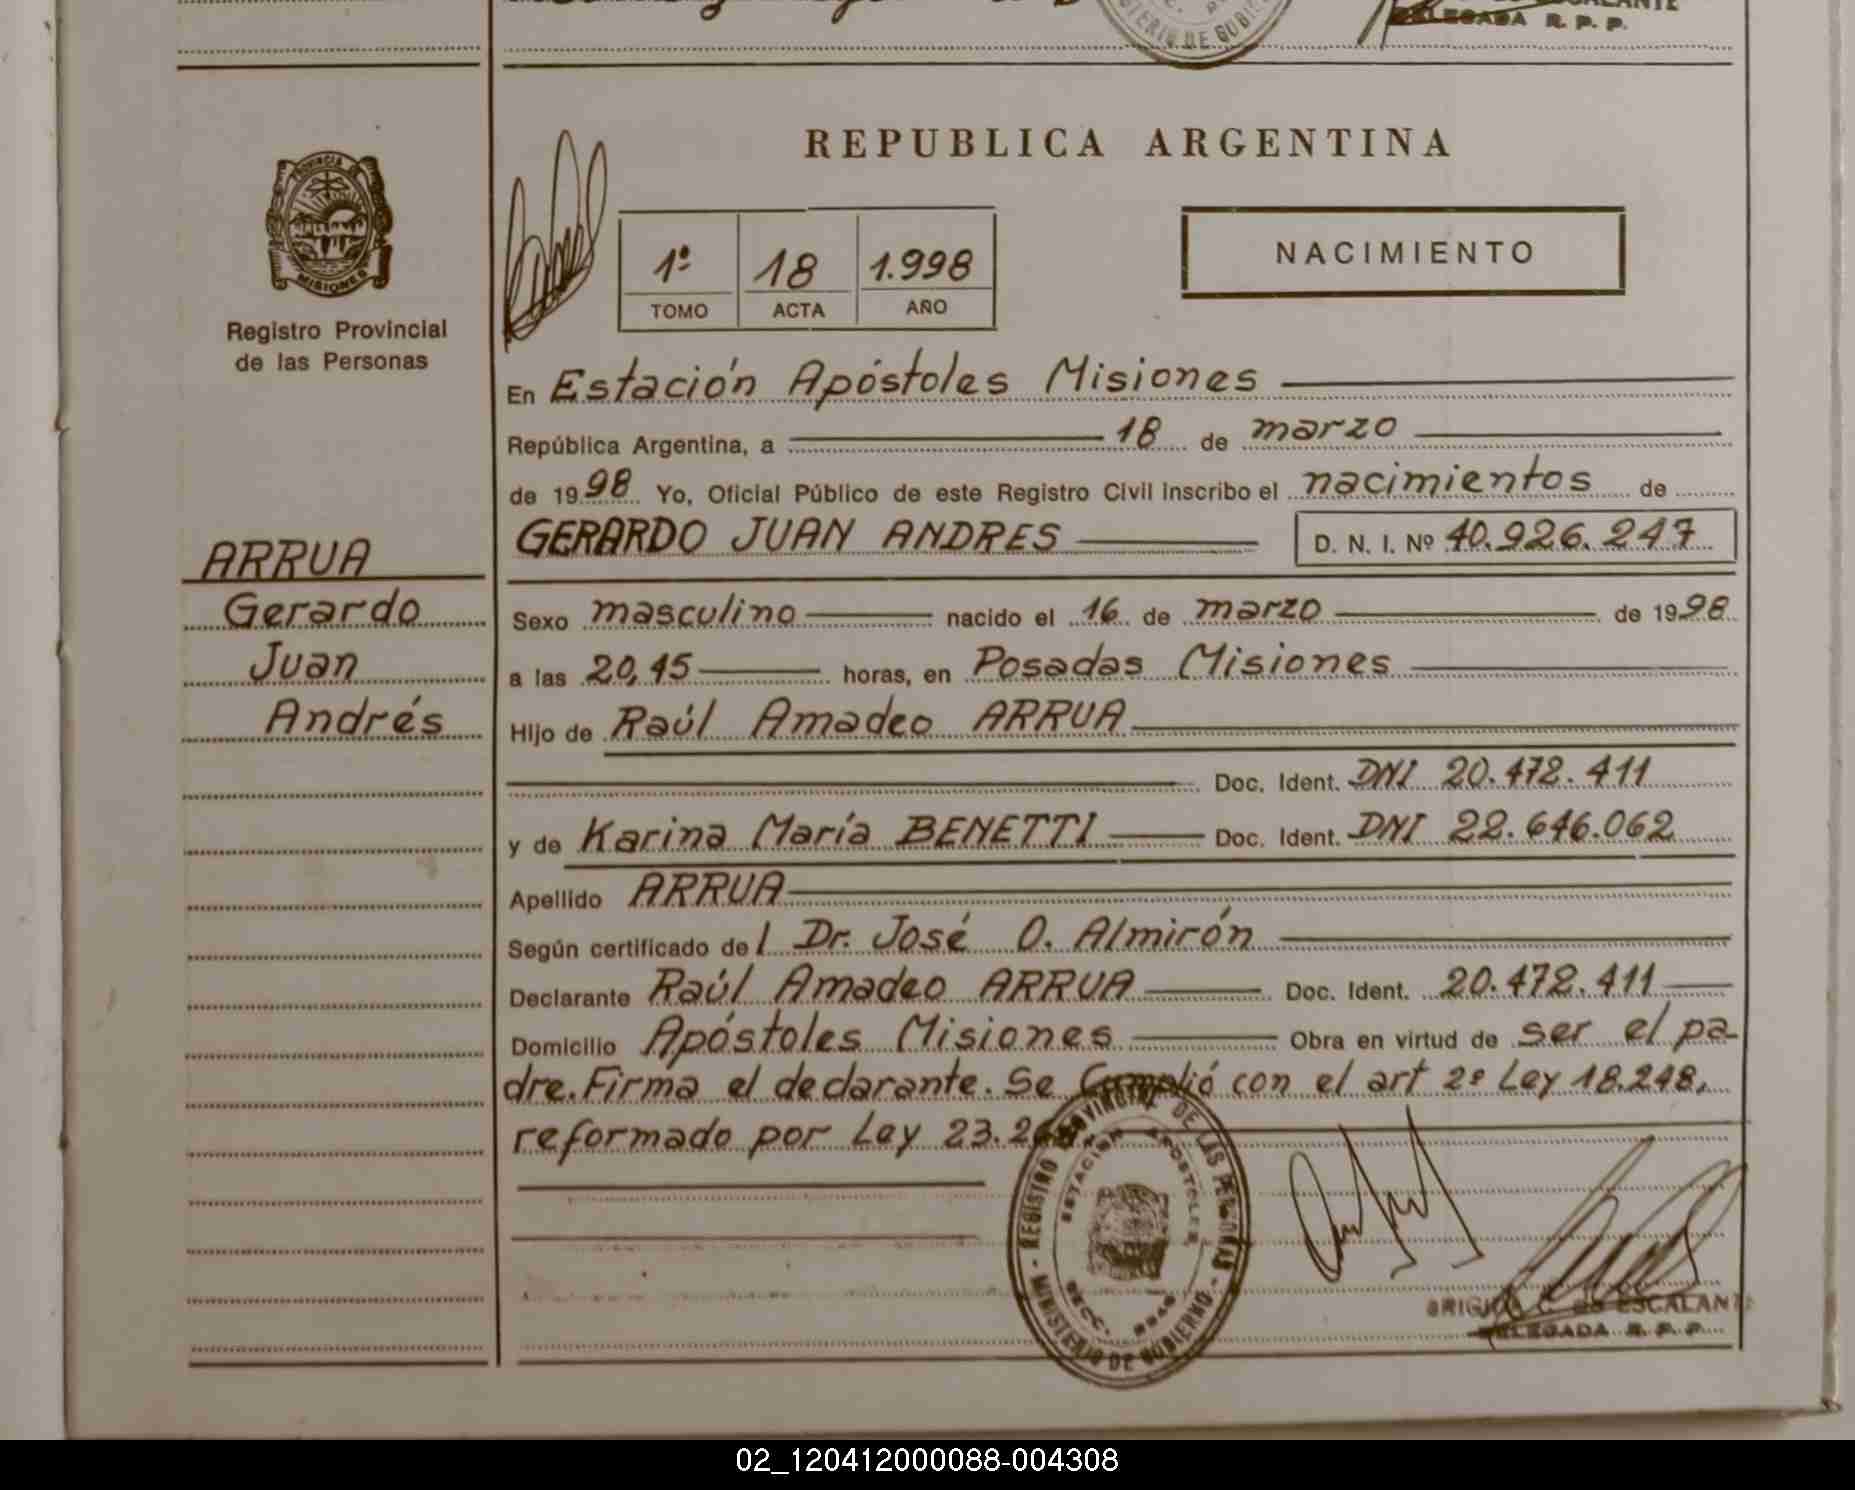 DELEGADA R. P. P.
REPUBLICA ARGENTINA
PROVINCIA DE
MISIONES
Registro Provincial
de las Personas
1º 18 1.998
TOMO ACTA AÑO
NACIMIENTO
En Estación Apóstoles Misiones
República Argentina, a 18 de marzo
de 1998 Yo, Oficial Público de este Registro Civil inscribo el nacimientos de
GERARDO JUAN ANDRES D. N. I. Nº 40.926.247
ARRUA
Gerardo
Juan
Andrés
Sexo masculino nacido el 16 de marzo de 1998
a las 20,45 horas, en Posadas Misiones
Hijo de Raúl Amadeo ARRUA
Doc. Ident. DNI 20.472.411
y de Karina María BENETTI Doc. Ident. DNI 22.646.062
Apellido ARRUA
Según certificado del Dr. José O. Almirón
Declarante Raúl Amadeo ARRUA Doc. Ident. 20.472.411
Domicilio Apóstoles Misiones Obra en virtud de ser el pa-
dre. Firma el declarante. Se Cumplió con el art 2º Ley 18.248,
reformado por Ley
REGISTRO PROVINCIAL DE LAS PERSONAS
- MINISTERIO DE GOBIERNO -
ESTACION APOSTOLES
ESCALANTE
DELEGADA R. P. P.
02_120412000088-004308